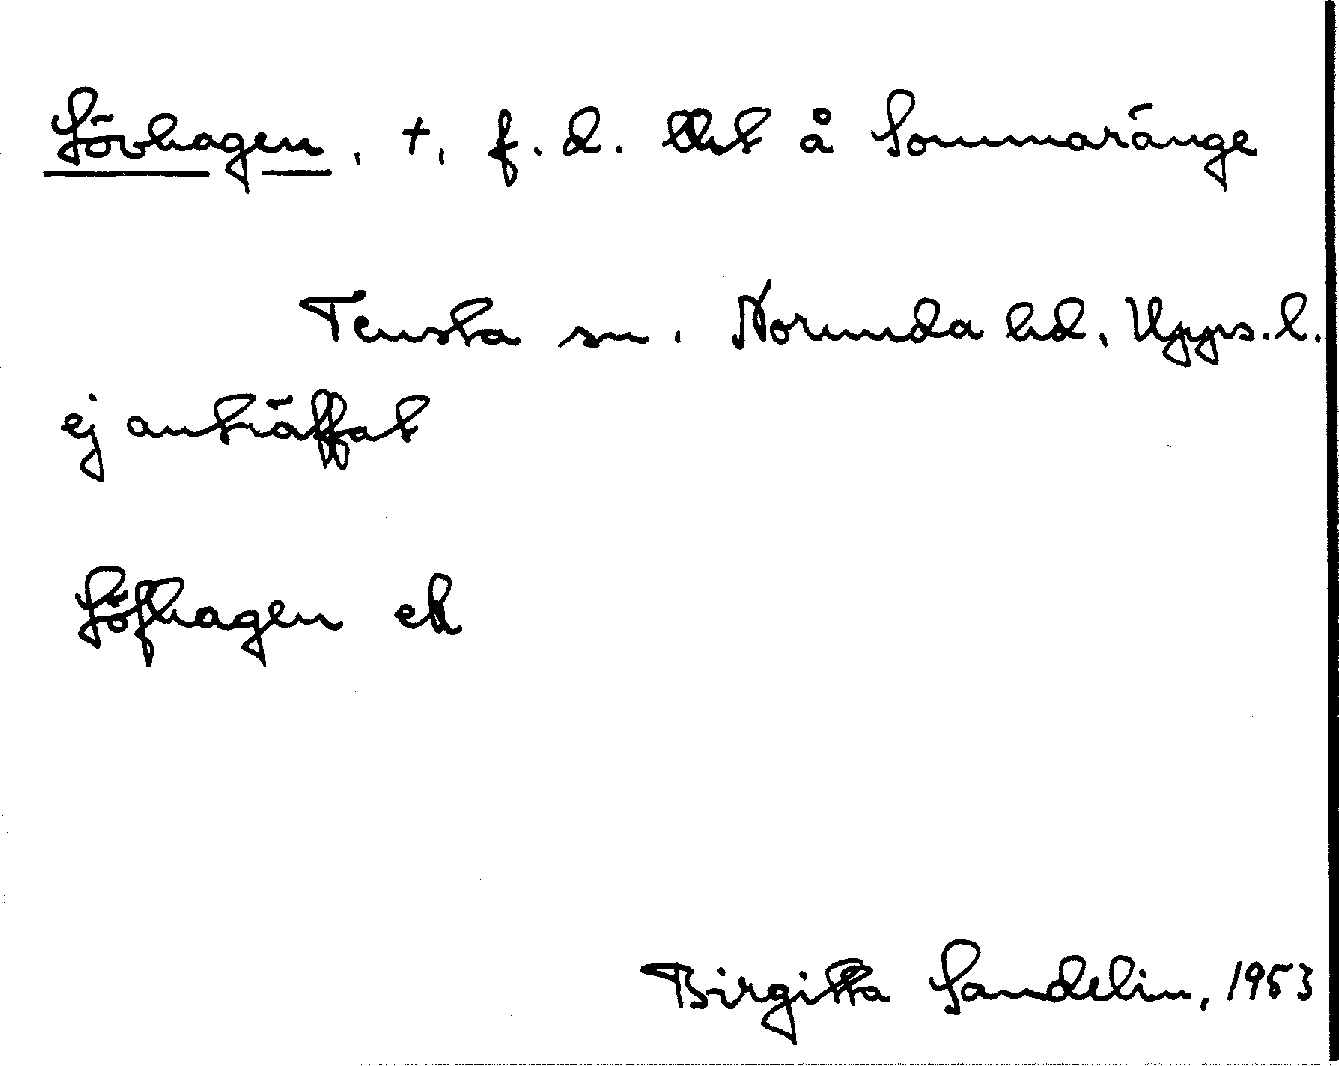 Sövhagen, +, f. d. lht å Sommaränge
Tensta sn. Norunda hd. Upps. l.
ej anträffat
Söfhagen ek
Birgitta Sandelin, 1953